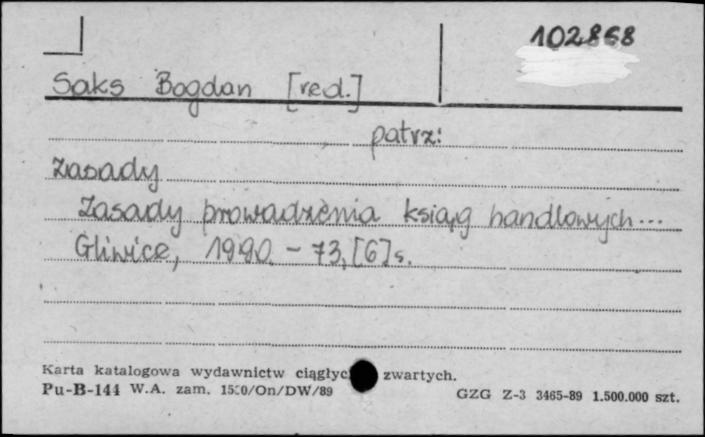 102868
Saks Bogdan [red.]
patrz:
Zasady
Zasady prowadzenia ksiąg handlowych...
Gliwice, 1990. - 73, [6] s.
Karta katalogowa wydawnictw ciągłyc zwartych.
Pu-B-144 W.A. zam. /On/DW/89
GZG Z-3 3465-89 1.500.000 szt.